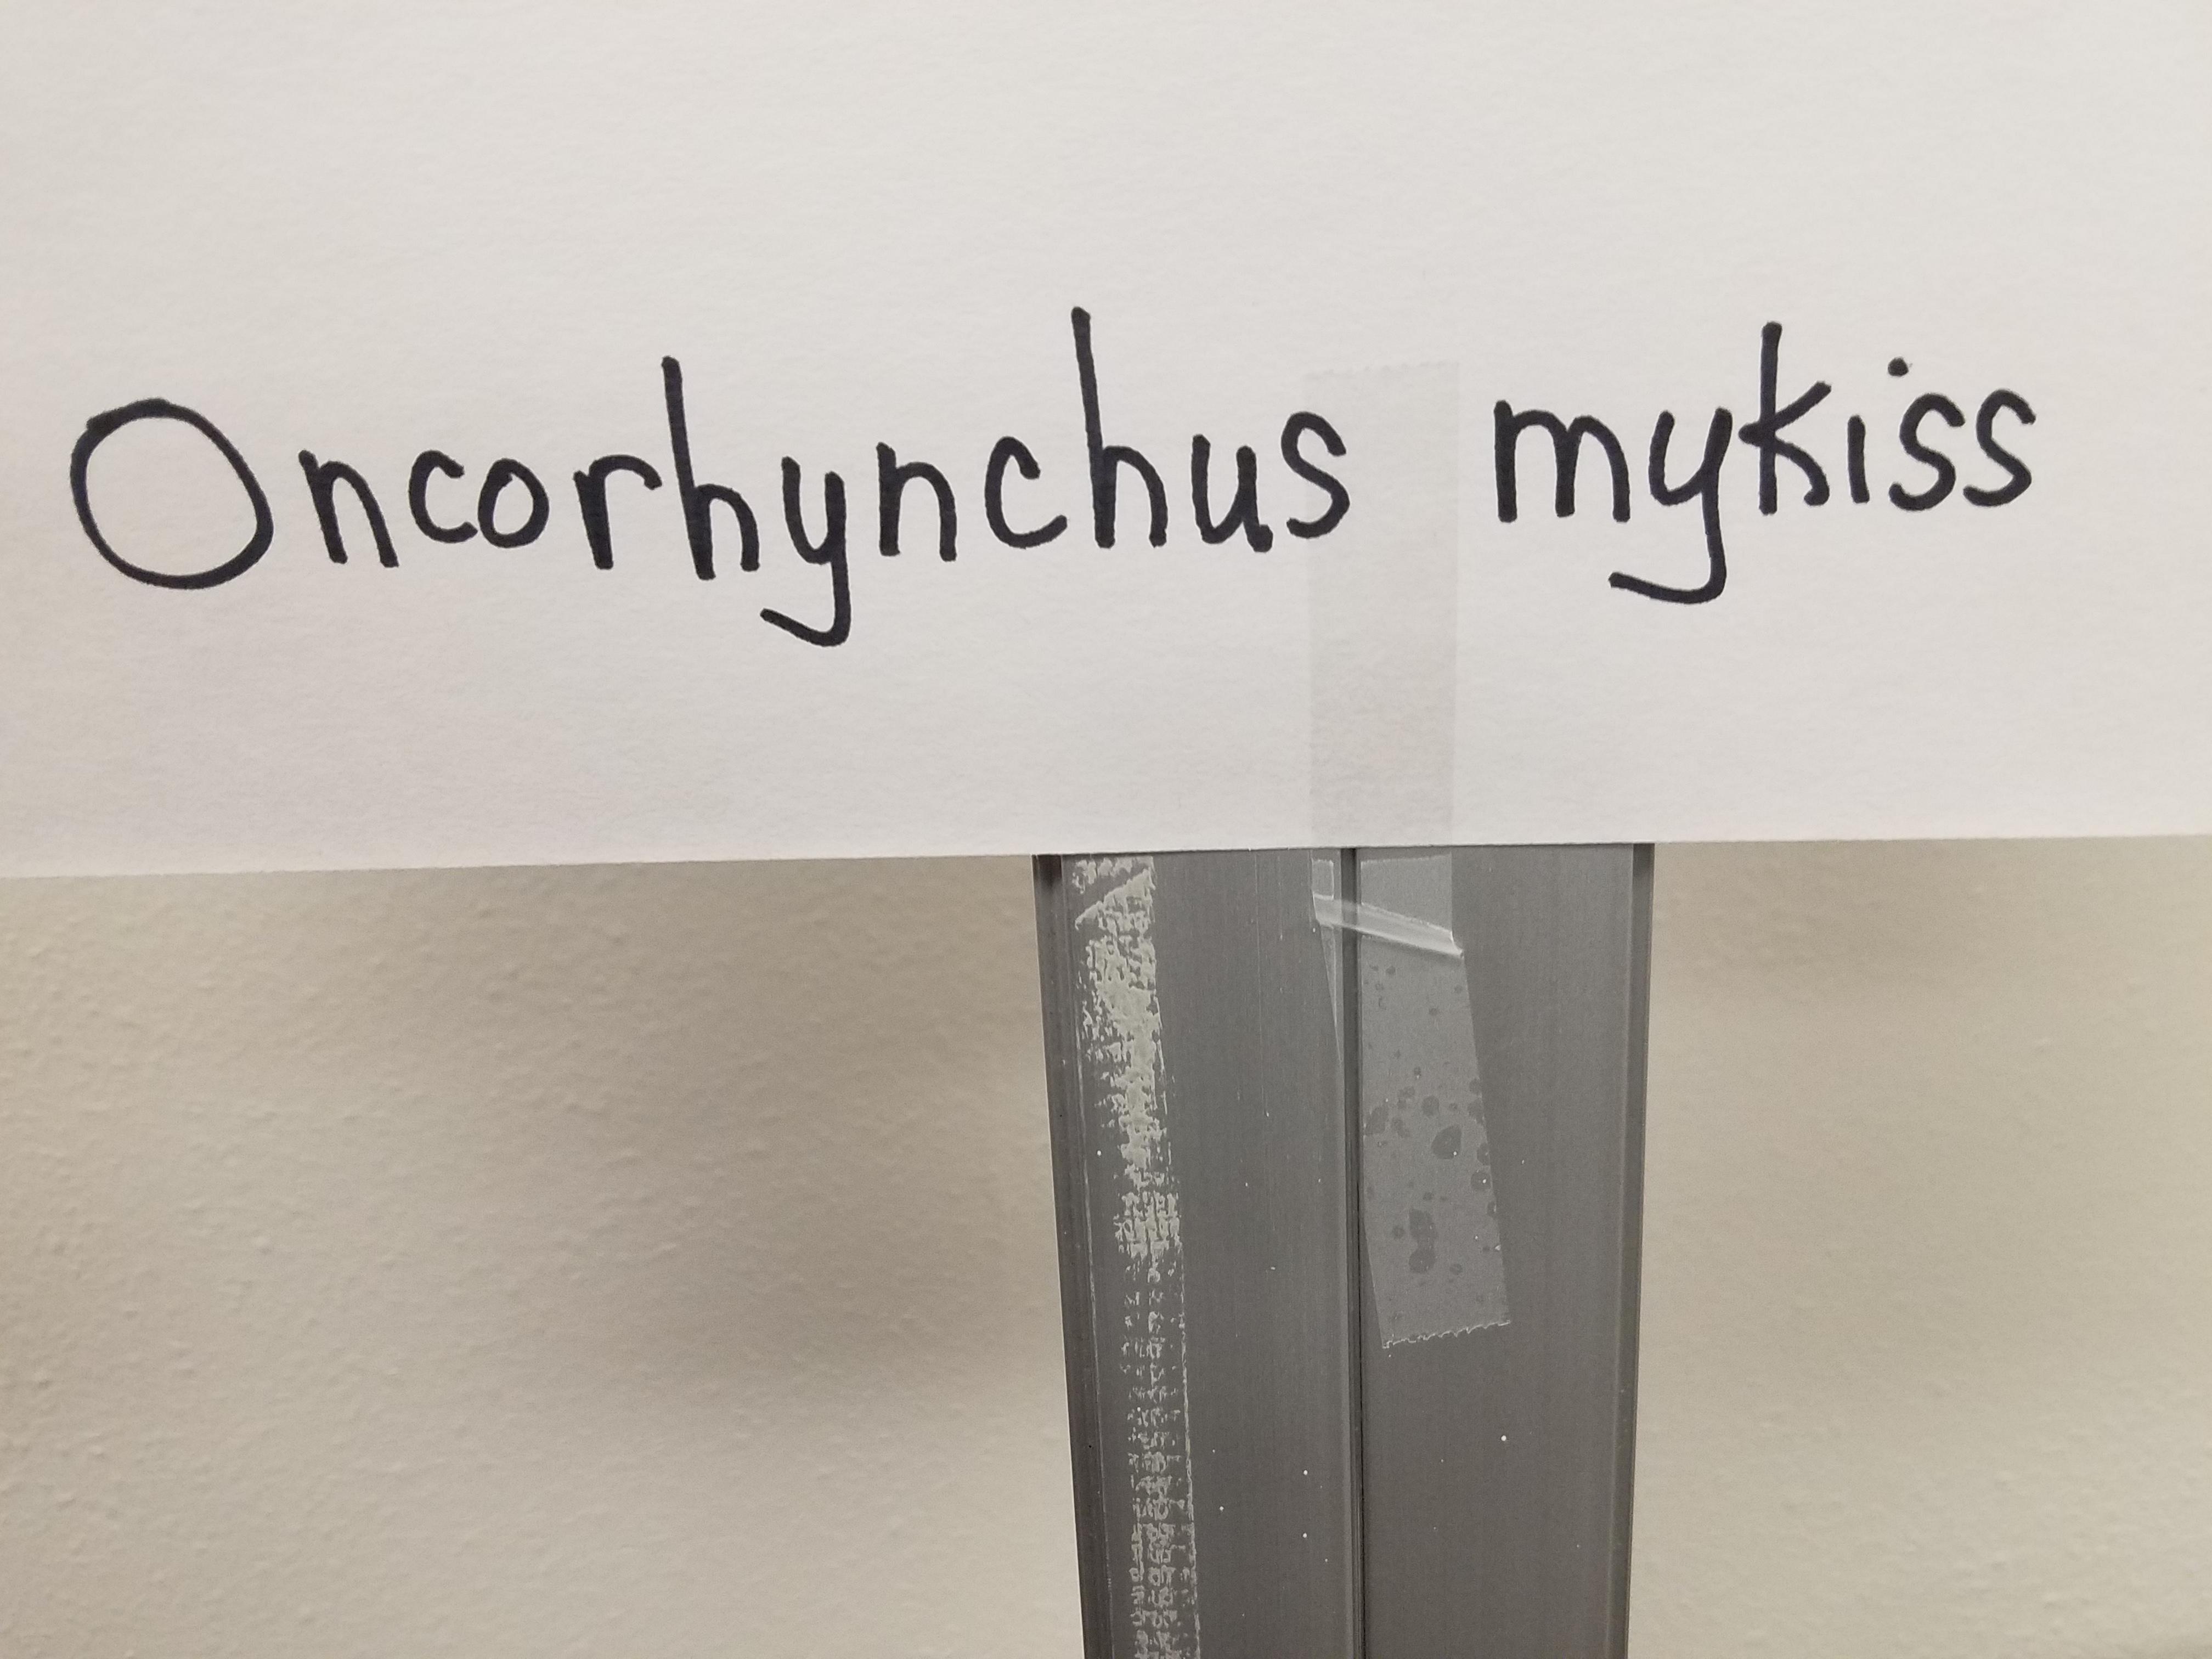 Oncorhynchus mykiss